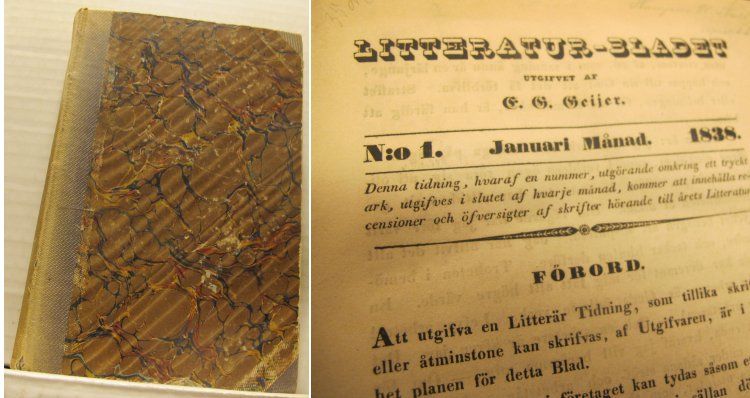 LITTERATUR-BLADET
UTGIFVET AF
E. G. Geijer.
N:o 1. Januari Månad. 1838.
Denna tidning, hvaraf en nummer, utgörande omkring ett tryckt
ark, utgifves i slutet af hvarje månad, kommer att innehålla re-
censioner och öfversigter af skrifter hörande till årets Litteratur
FÖRORD.
Att utgifva en Litterär Tidning, som tillika
eller åtminstone kan skrifvas, af Utgifvaren, är i
het planen för detta Blad.
företaget kan tydas såsom